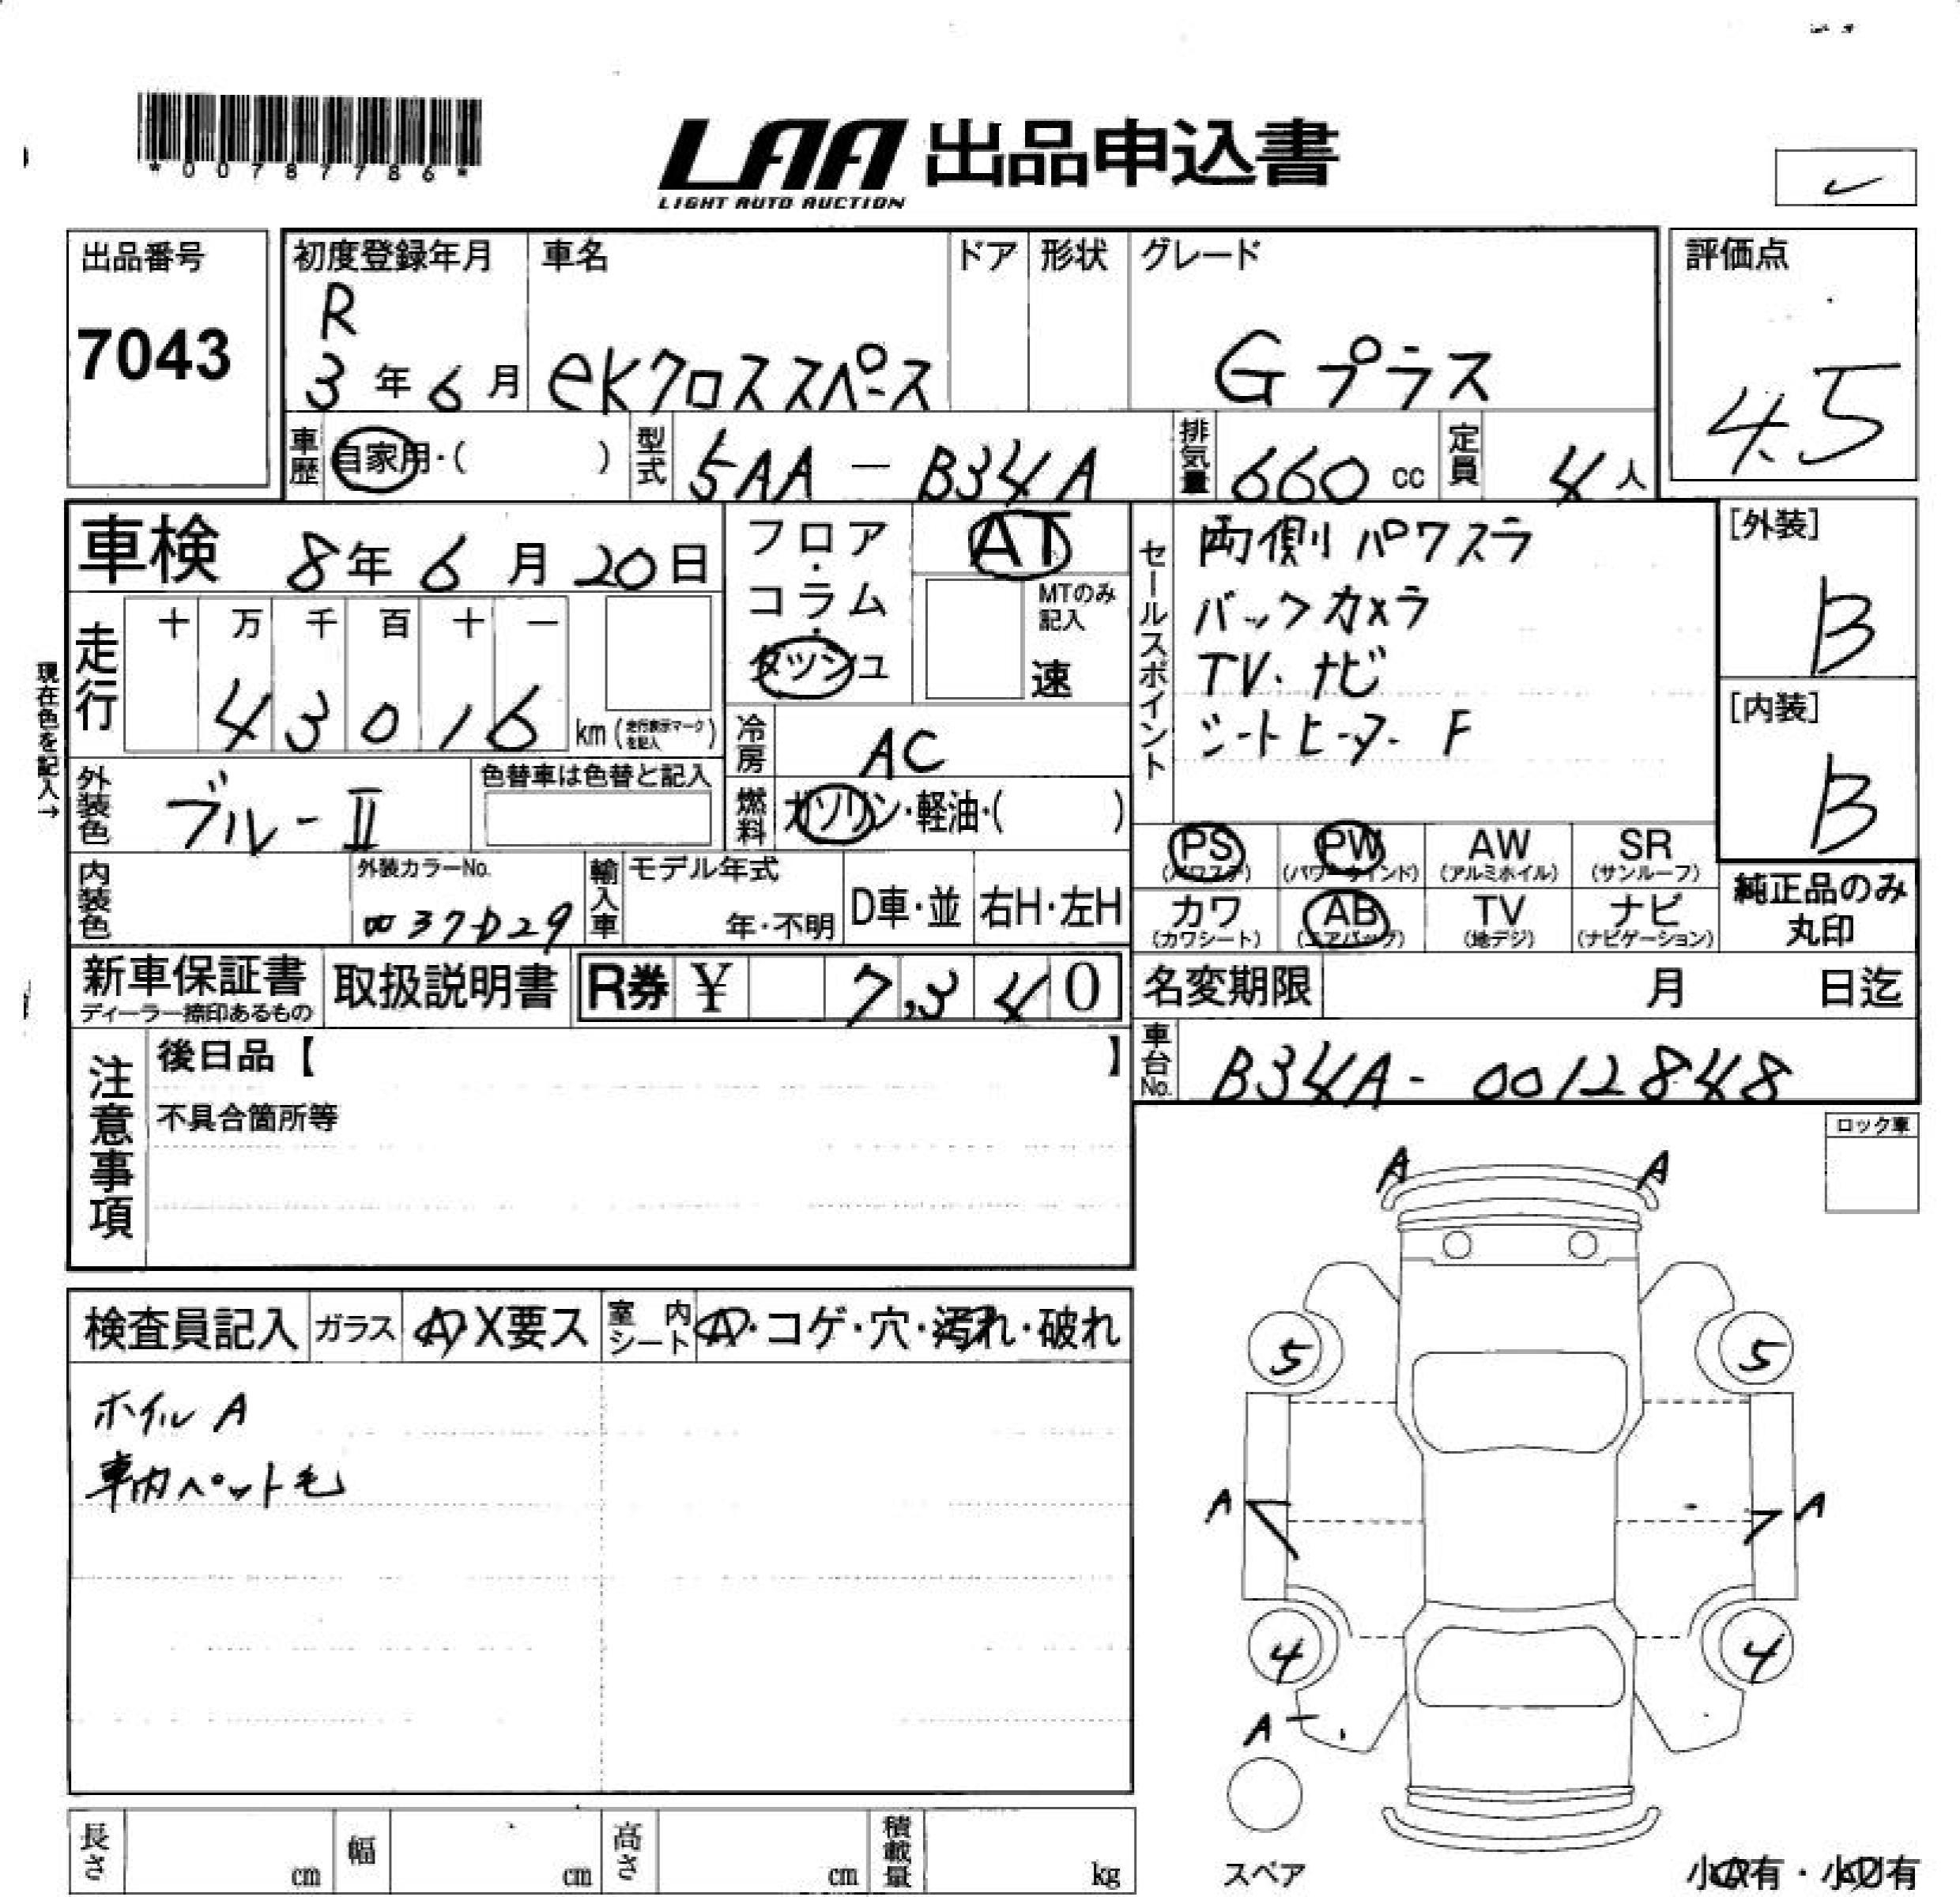 *00787786*
LAA 出品申込書
LIGHT AUTO AUCTION
出品番号
7043
初度登録年月
R
3年6月
車名
eKクロススペース
ドア
形状
グレード
Gプラス
評価点
4.5
車歴
自家用・( )
型式
5AA-B34A
排気量
660cc
定員
4人
車検 8年6月20日
フロア・コラム・ダッシュ
AT
MTのみ記入
速
セールスポイント
両側パワスラ
バックカメラ
TV.ナビ
シートヒーター F
[外装]
B
[内装]
B
現在色を記入→
走行
十 万 千 百 十 一
43016
km(走行表示マークを記入)
冷房
AC
外装色
ブルーII
色替車は色替と記入
燃料
ガソリン・軽油・( )
PS
(パワステ)
PW
(パワーウインド)
AW
(アルミホイル)
SR
(サンルーフ)
内装色
外装カラーNo.
輸入車
モデル年式
年・不明
D車・並
右H・左H
カワ
(カワシート)
AB
(エアバッグ)
TV
(地デジ)
ナビ
(ナビゲーション)
純正品のみ
丸印
新車保証書
ディーラー捺印あるもの
取扱説明書
R券 ¥ 7,340
名変期限 月 日迄
注意事項
後日品【 】
不具合箇所等
車台No.
B34A-0012848
ロック車
A A
検査員記入
ガラス
A・X要ス
室内シート
A・コゲ・穴・汚れ・破れ
ホイルA
車内ペット毛
5 5
A A
4 4
A
スペア
長さ cm
幅 cm
高さ cm
積載量 kg
小A有・小凹有